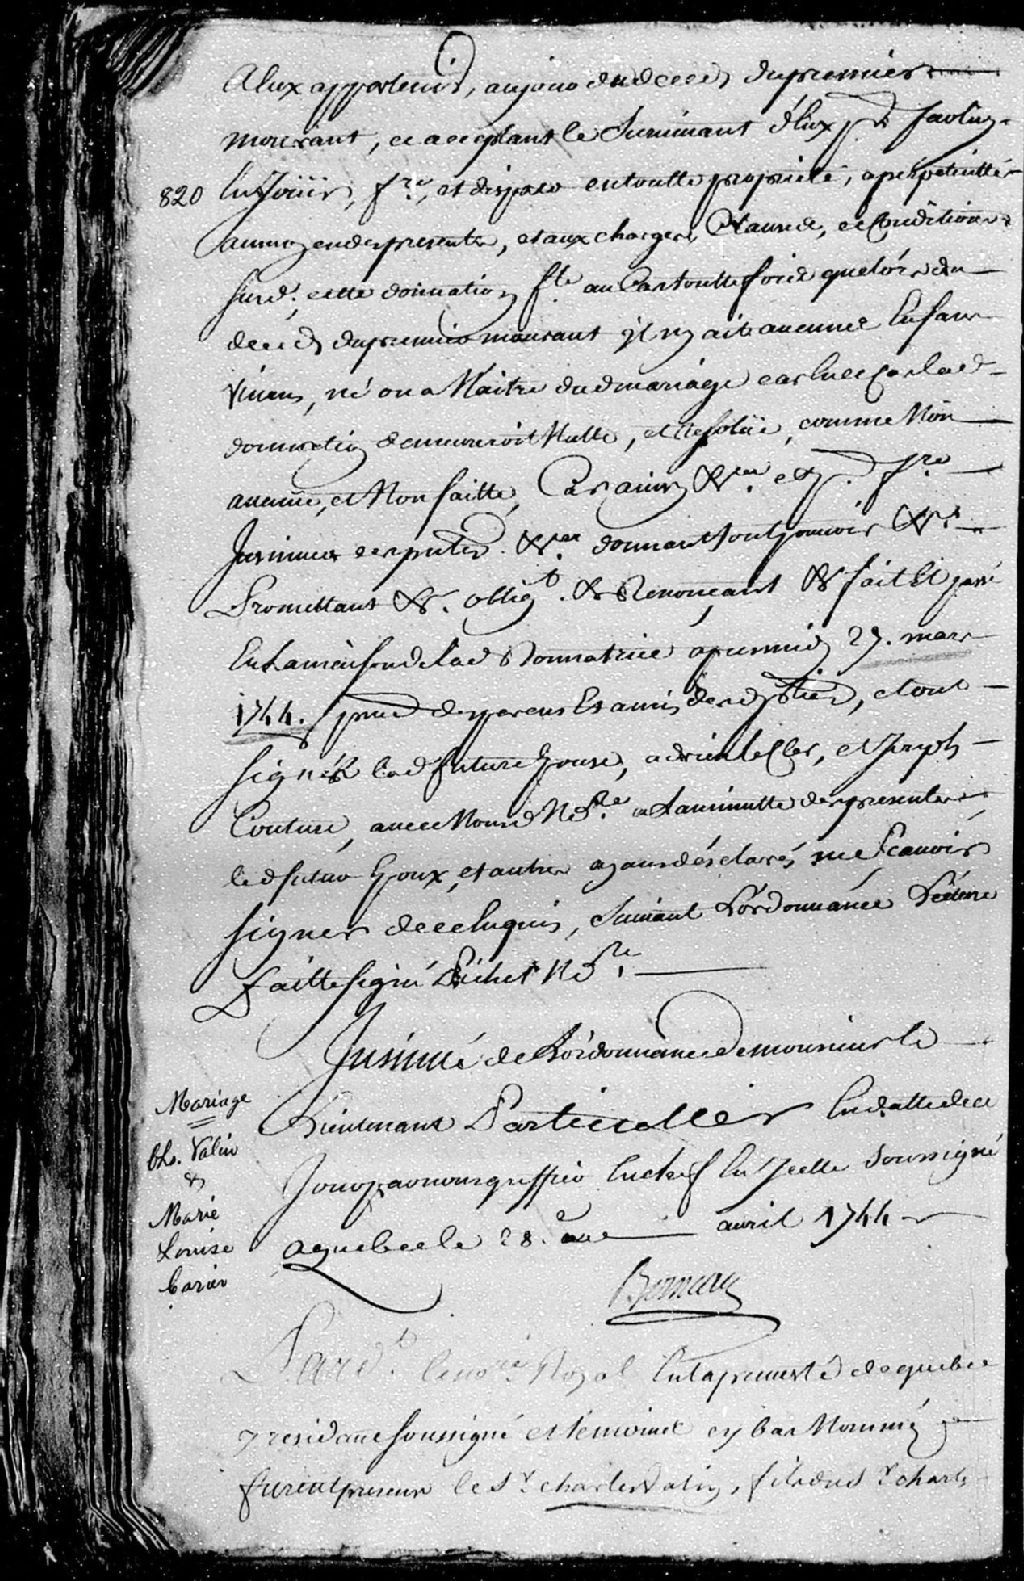 a Eux appartenir, au jour du deced du premier
mourant, ce acceptant le Survivant d'Eux pr
820 En Jouir, fre, et disposer en toutte propriété, a perpetuitté
au moyen des presentes, et aux charges, Clauses, et Conditions
Susd. cette donnation fte au Cas toutte fois que lors du
deced du premier mourant il n'y ait aucunne Enfans
Vivans, né ou a Naitre dud mariage car En ce Cas lad
donnation demeureroit Nulle, et Resolüe, comme Non
avenüe, et Non faitte, Car ainsy &ra. fre
Insinuer ces pntes. &ra. donnant tout pouvoir &ra
Promettant &. obligt. & Renonçant & fait Et passé
En la maison de lad donnatrice apres midy 27. mars
1744. pnce des parens Et amis desd parties, et ont
Signé lad future Epouse, adrien leclerc, et Joseph
Couture, avec Nousd Nore. a la minutte des presentes
led futur Epoux, et autres ayans déclarés ne Scavoir
Signer de ce Enquis, Suivant L'ordonnance Lecture
faitte Signé Pichet Nore.
Insinué de L'ordonnance de monsieur le
Lieutenant Particullier En datte de ce
Jour par nous greffier En chef En Icelle Soussigné
a quebec le 28.e avril 1744
Boisseau
Mariage
Ch. Valin
&
Marie
Louise
Carier
Pard.t le nore Royal En la prevosté de quebec
y residant soussigné et témoins cy bas Nommés
furent presens le Sr. charles Valin, fils du Sr charles